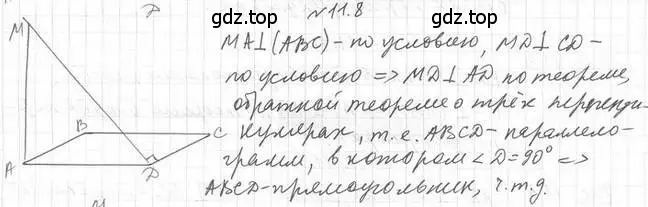 gdz.top
gdz.top
№ 11.8
M
MA⊥(ABC) - по условию, MD⊥CD -
по условию => MD⊥AD по теореме,
обратной теореме о трёх перпенди-
кулярах, т.е. ABCD - параллело-
грамм, в котором <D=90° =>
ABCD - прямоугольник, ч.т.д.
B
C
A
D
gdz.top
gdz.top
M